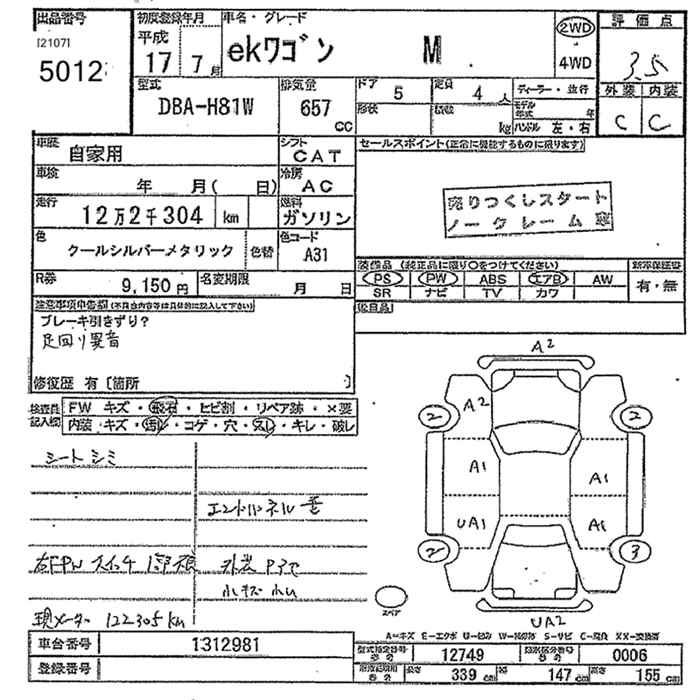 出品番号 初度登録年月 車名・グレード 評価点
[21071] 平成 2WD
5012 17 7月 ekワゴン M 4WD 3.5
型式 排気量 ドア 5 定員 4人 ディーラー・並行 外装 内装
DBA-H81W 657 CC 形状 積数 kg モデル年式 年 ハンドル 左・右 C C
車歴 自家用 シフト CAT セールスポイント(正常に機能するものに限ります)
車検 年 月( 日) 冷房 AC
走行 12万2千304 km 燃料 ガソリン 売りつくしスタート
ノークレーム
色 クールシルバーメタリック 色替 色コード A31
装備品 (純正品に限り○をつけてください) 新車保証書
R券 9,150円 名変期限 月 日 PS PW ABS エアB AW 有・無
SR ナビ TV カワ
注意事項申告欄(不具合内容等は具体的に記入して下さい) 後日品
ブレーキ引きずり?
足回り異音
修復歴 有 [箇所 ]
検査員記入欄 FW キズ・飛石・ヒビ割・リペア跡・×要
内装・キズ・汚レ・コゲ・穴・スレ・キレ・破レ
A2
A2
2 2
A1 A1
UA1 A1
2 3
UA2
スペア
シートシミ
エンドパネル
右FPW スイッチ
外装
小キズ 小U
現メーター 122305km
A=キズ E=エクボ U=凹み W=補修跡 S=サビ C=腐食 XX=交換済
車台番号 1312981 型式指定番号 12749 類別区分番号 0006
登録番号 長さ 339cm 幅 147cm 高さ 155cm